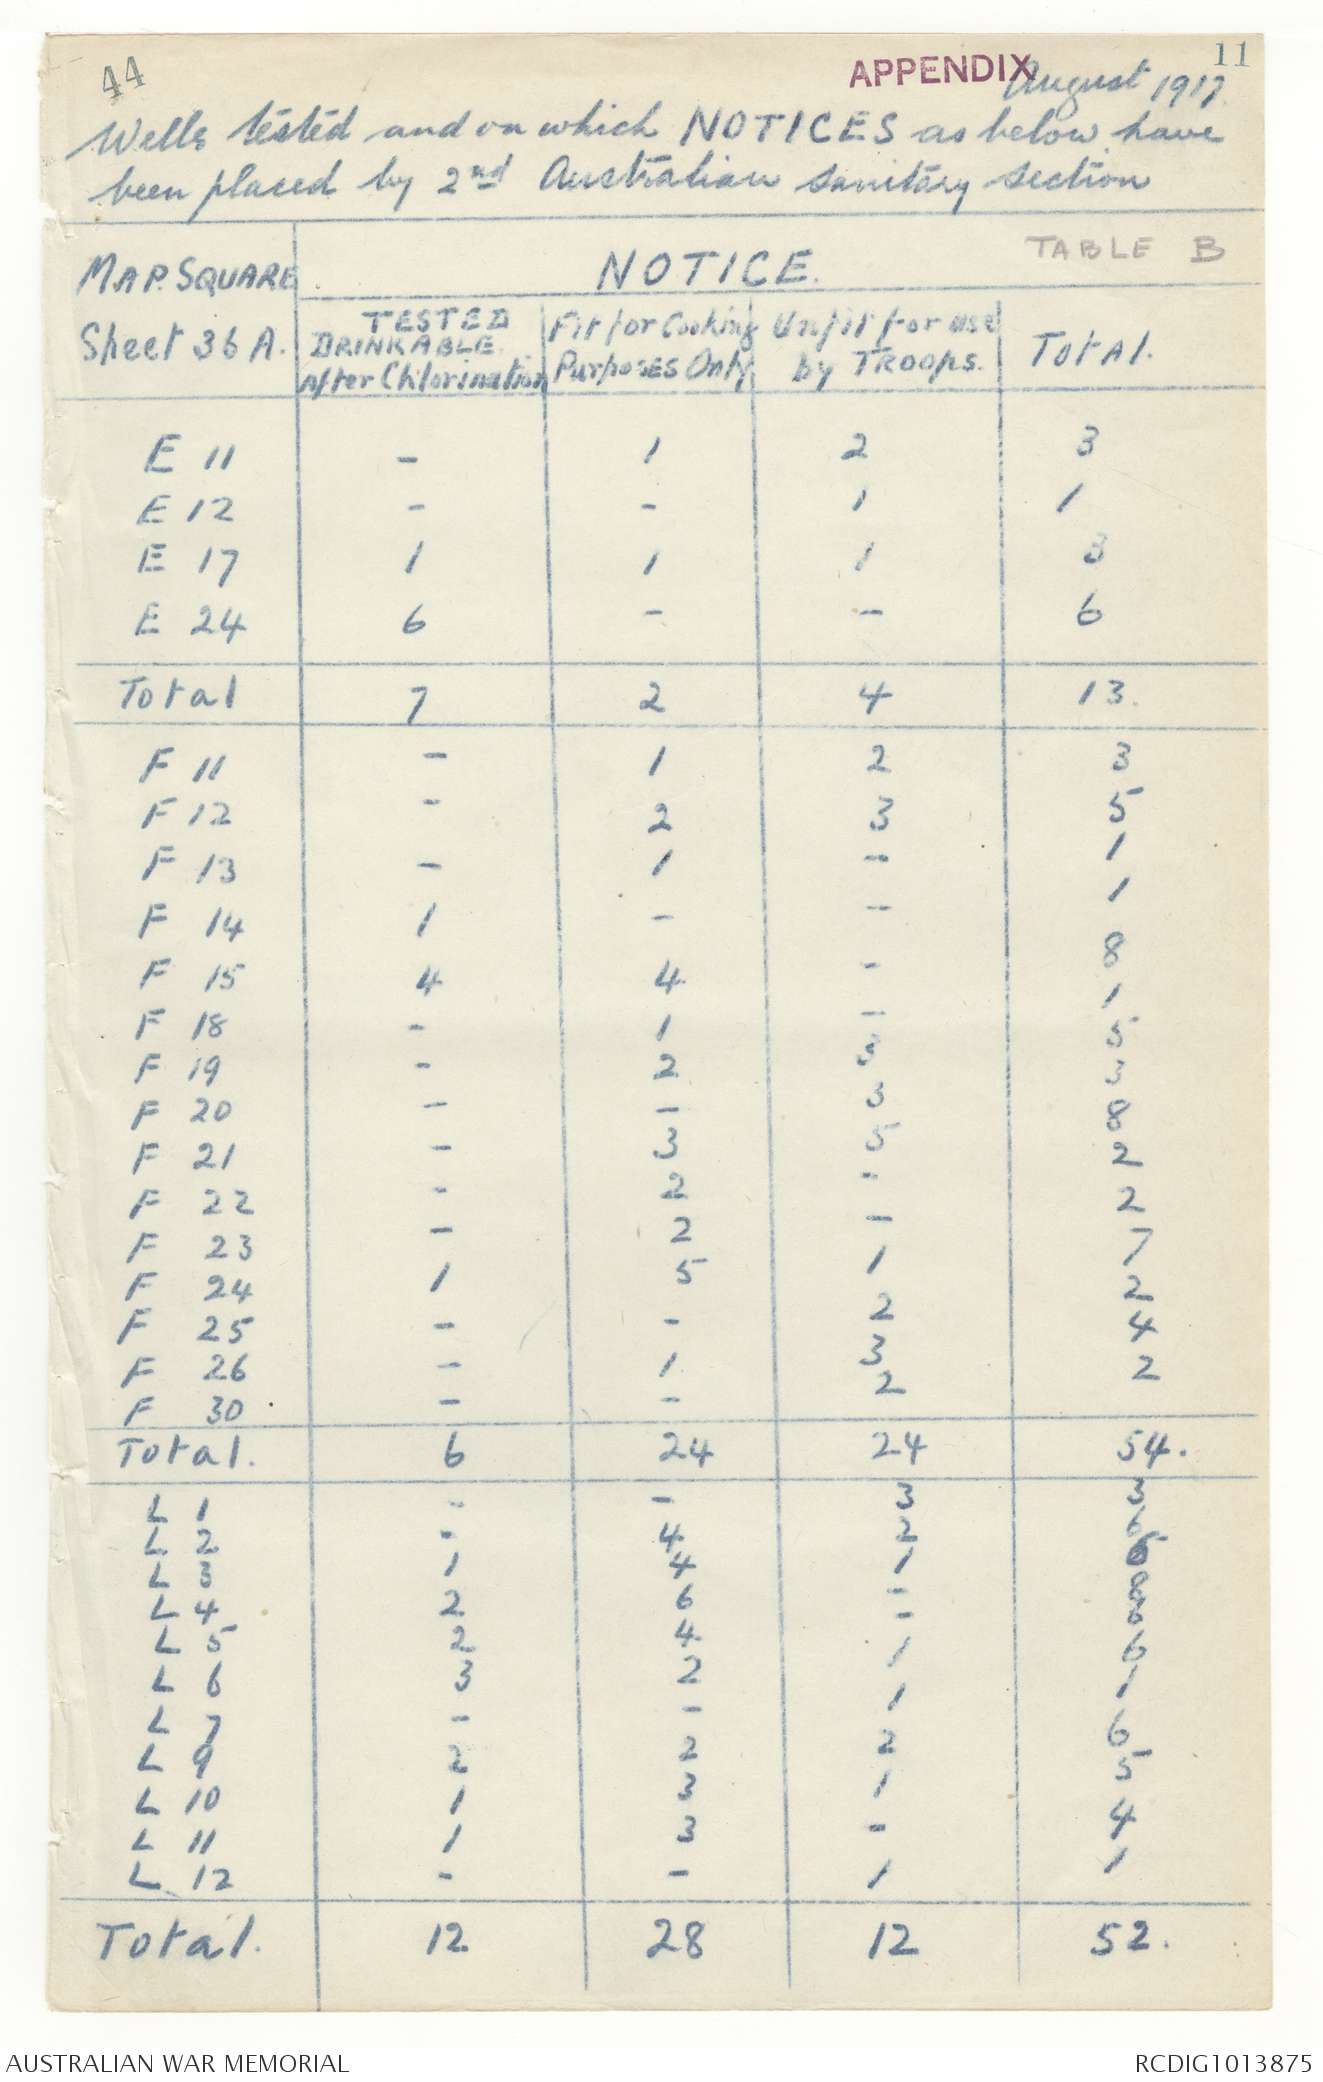 44
APPENDIX
11
August 1917.
Wells tested and on which NOTICES as below have
been placed by 2nd Australian sanitary section
TABLE B
MAP. SQUARE
Sheet 36 A.
NOTICE.
TESTED DRINKABLE. After Chlorination
Fit for Cooking Purposes Only
Unfit for use by TROOPS.
TOTAL.
E 11 - 1 2 3
E 12 - - 1 1
E 17 1 1 1 3
E 24 6 - - 6
Total 7 2 4 13.
F 11 - 1 2 3
F 12 - 2 3 5
F 13 - 1 - 1
F 14 1 - - 1
F 15 4 4 - 8
F 18 - 1 - 1
F 19 - 2 3 5
F 20 - - 3 3
F 21 - 3 5 8
F 22 - 2 - 2
F 23 - 2 - 2
F 24 1 5 1 7
F 25 - - 2 2
F 26 - 1 3 4
F 30 - - 2 2
Total. 6 24 24 54.
L 1 - - 3 3
L 2 - 4 2 6
L 3 1 4 1 6
L 4 2 6 - 8
L 5 2 4 - 6
L 6 3 2 1 6
L 7 - - 1 1
L 9 2 2 2 6
L 10 1 3 1 5
L 11 1 3 - 4
L 12 - - 1 1
Total. 12 28 12 52.
AUSTRALIAN WAR MEMORIAL
RCDIG1013875